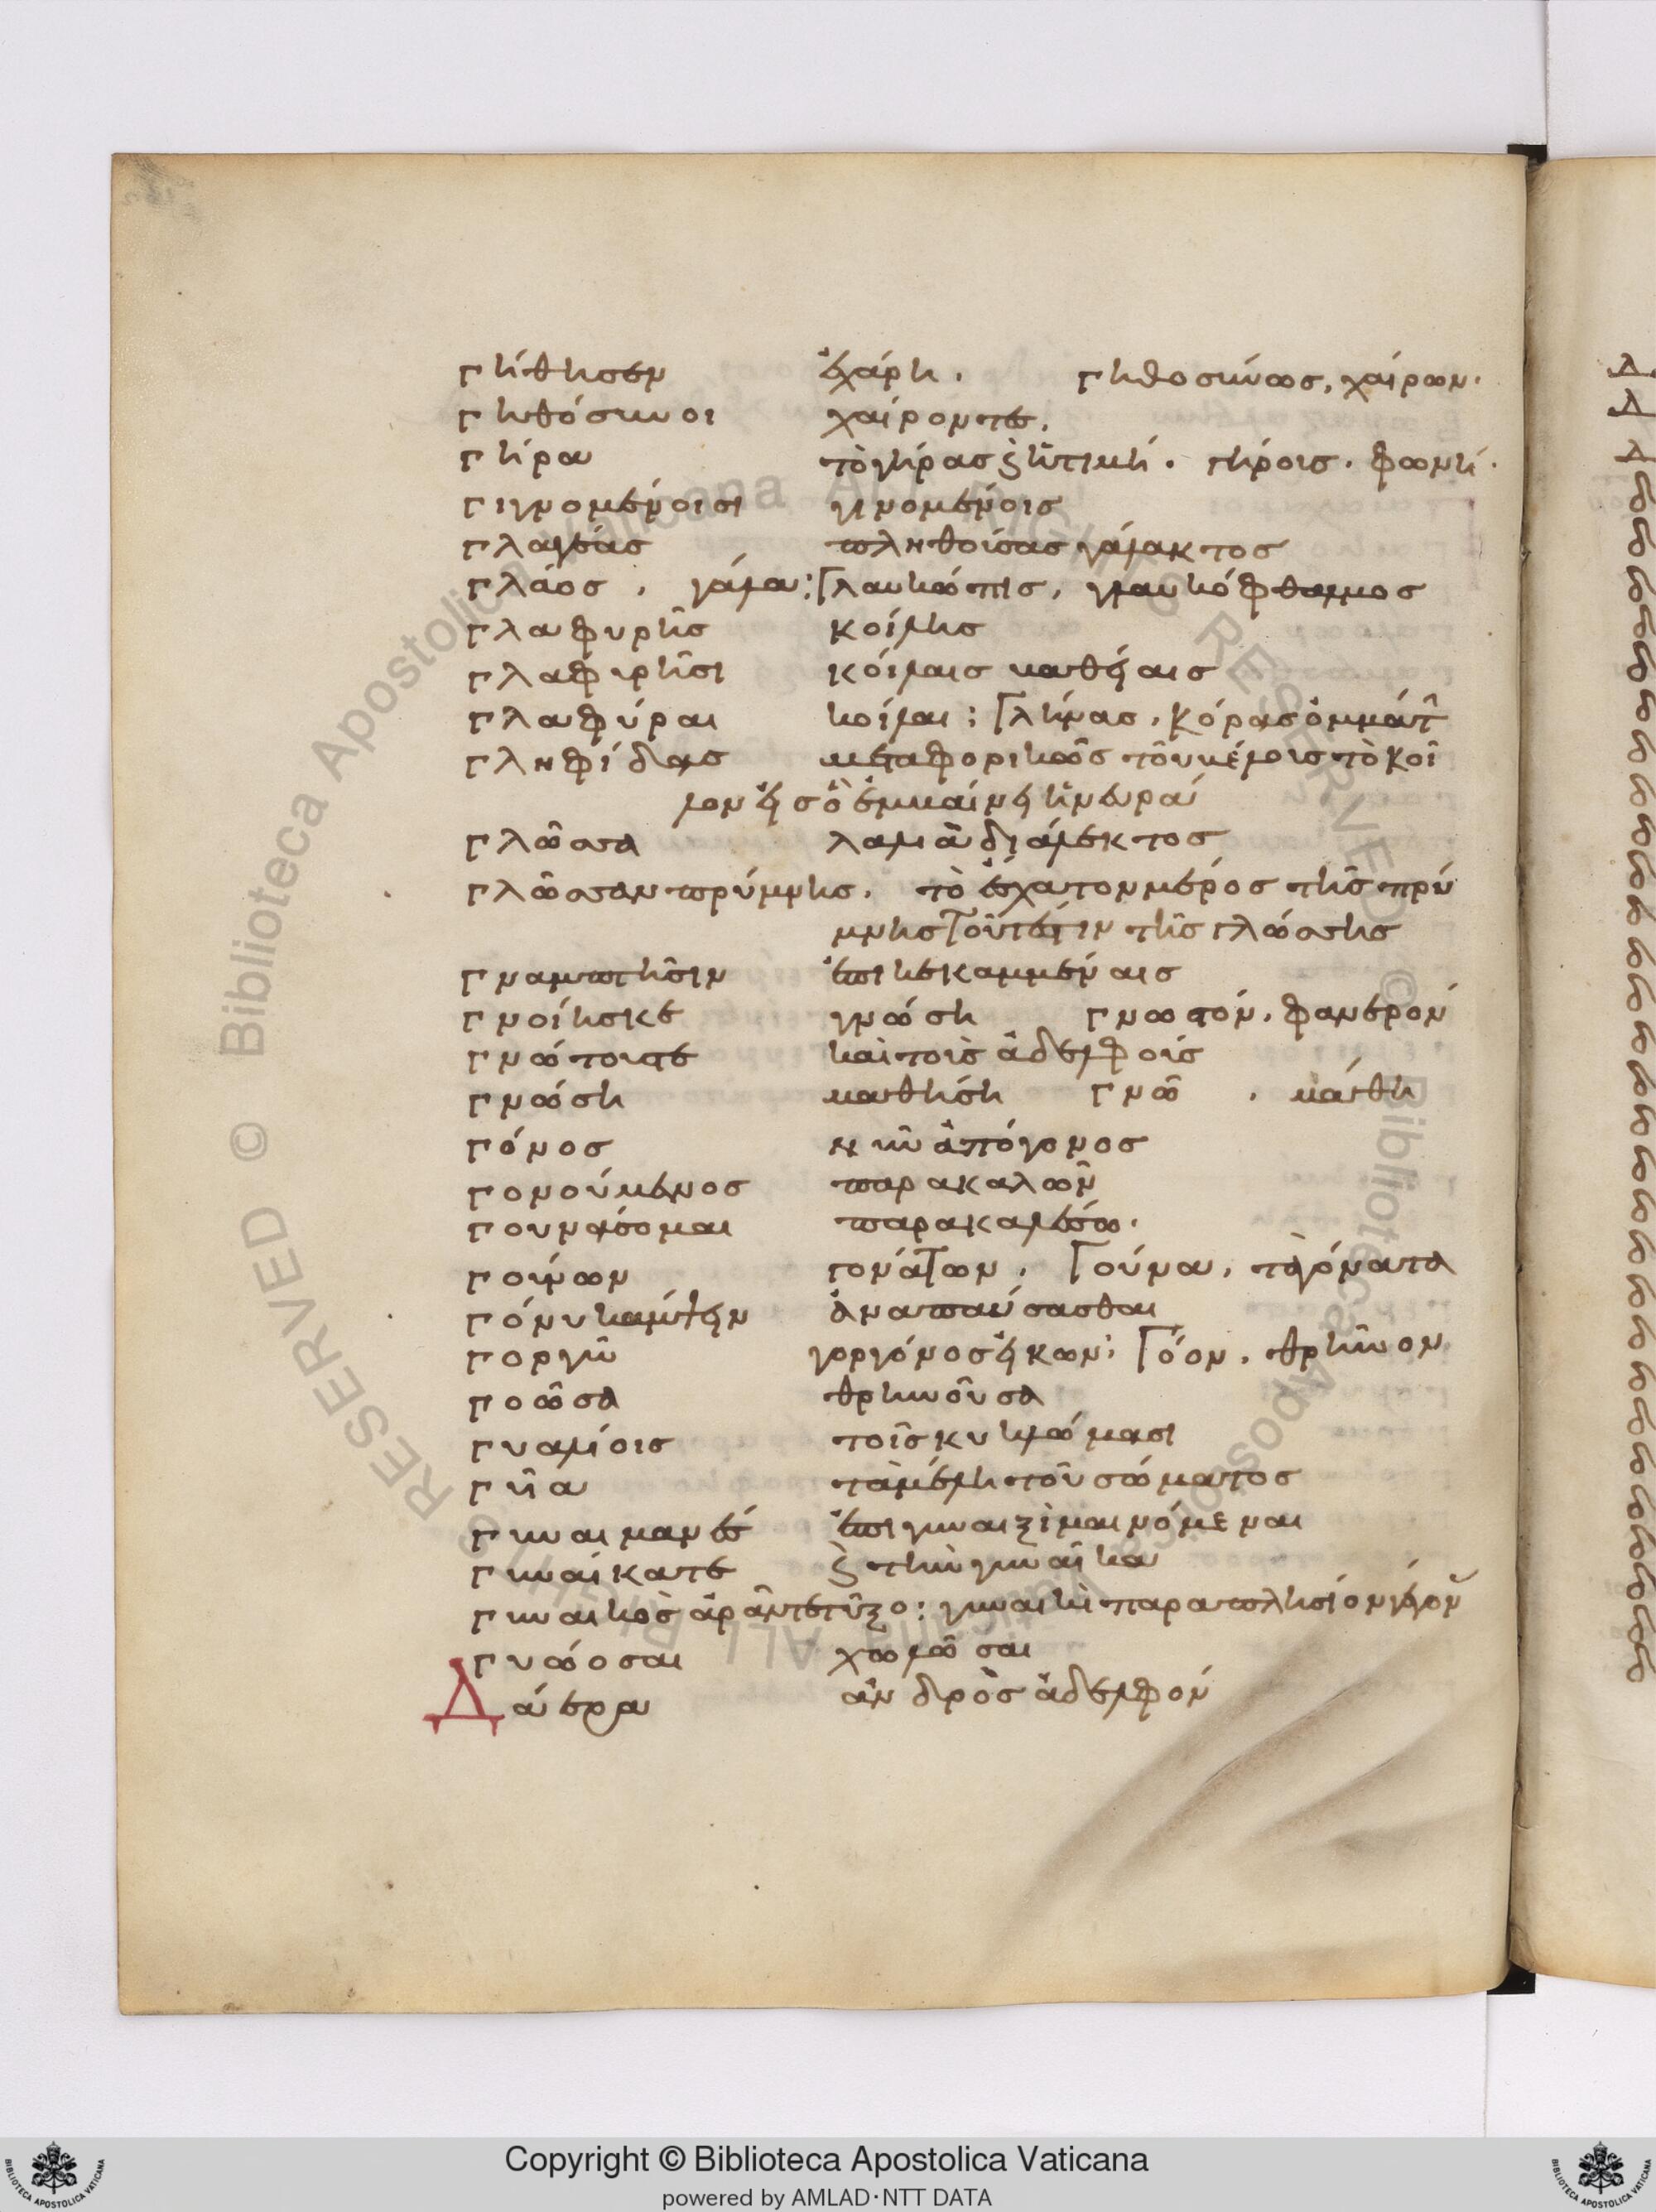 γήθησεν ἐχάρη. γηθοσύνως, χαίρων.
γηθόσυνοι χαίροντες.
γήρα τὸ γήρας καὶ ἡ τιμή. γήροις. φωνή.
γιγνομένοισι γινομένοις
γλαγέας πληθοίσας γάλακτος
γλάος, γάλα: Γλαυκώπις, γλαυκόφθαλμος
γλαφυρῆς κοίλης
γλαφυρῆσι κοίλαις βαθείαις
γλαφύραι κοίλαι: Γλήνας, κόρας ὀμμάτ
γληφίδας μεταφορικῶς τοῦ βέλους τὸ κοῖ
λον εἰς ὃ ἐμβαίνει ἡ νευρά
γλῶσσα λαλιὰ διάλεκτος
γλῶσσαν πρύμνης. τὸ ἔσχατον μέρος τῆς πρύ
μνης τουτέστιν τῆς γλώσσης
γναμπτῆσιν ἐπικεκαμμέναις
γνοίησκε γνώση γνωστόν, φανερόν
γνώτουςτε καὶ τοὶς ἀδελφοίς
γνώση μαθήση γνῶ, μάθη
γόνος νῦν ἀπόγονος
γονούμενος παρακαλῶν
γουνάσομαι παρακαλέσω.
γούνων γονάτων. Γούνα, τὰ γόνατα
γόνυ κάμψειν ἀναπαύσασθαι
γοργῦ γοργόνος εἰκων: Γόον, θρῆνον
γοῶσα θρηνοῦσα
γυαλίοις τοῖς κυκλώμασι
γῦια τὰ μέλη τοῦ σώματος
γυναιμανές ἐπὶ γυναιξὶ μαινόμεναι
γυναίκατε καὶ τὴν γυναῖκα
γυναικὸς ἀρ᾽ ἀντετῦξο: γυναικὶ παραπλήσιον
γυώσαι χωλῶσαι
Δάερα ἀνδρὸς ἀδελφόν
Copyright © Biblioteca Apostolica Vaticana
powered by AMLAD·NTT DATA